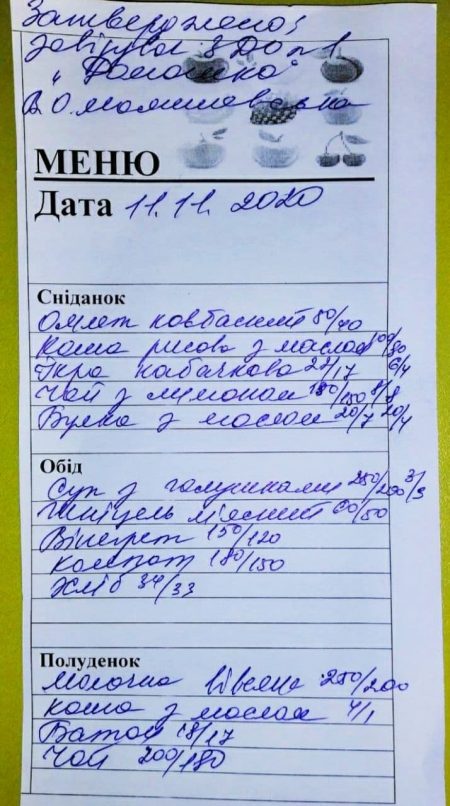 Затверджено:
Завідувач ЗДО №1
"Ромашка"
В.О.
МЕНЮ
Дата 11.11. 2020
Сніданок
Омлет ковбасний 50/40
Каша рисова з маслом 100/80 6/4
Ікра кабачкова 25/17
Чай з лимоном 180/150 8/8
Булка з маслом 20/7 20/4
Обід
Суп з галушками 250/200 3/3
Шніцель мясний 60/50
Вінегрет 150/120
Компот 180/150
Хліб 34/33
Полуденок
Молочна вівсяна 250/200
каша з маслом 4/1
Батон 18/17
Чай 200/180